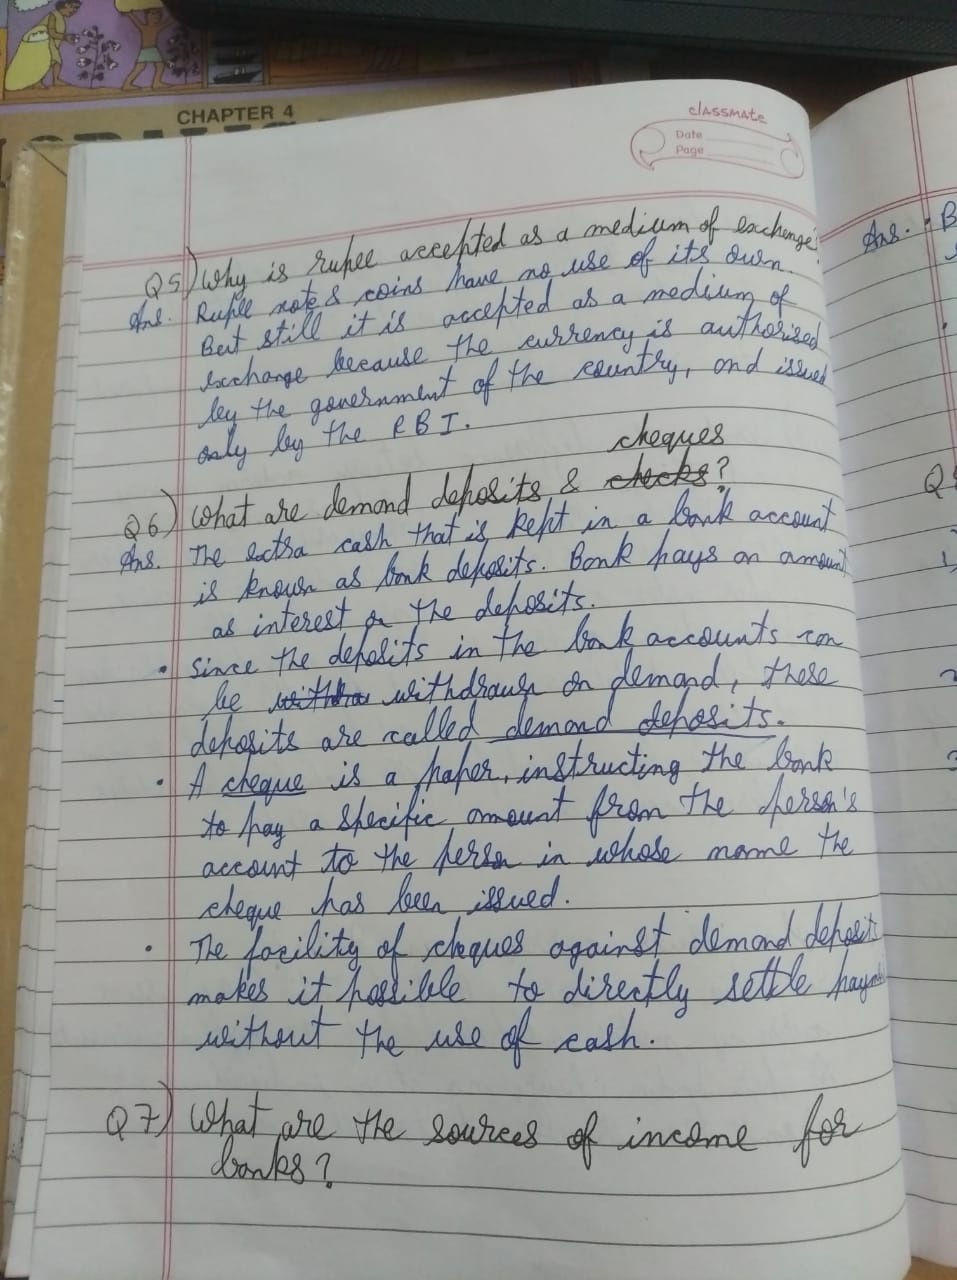 CHAPTER 4
classmate
Date
Page
Q5) Why is rupee accepted as a medium of exchange?
Ans. Rupee note & coins have no use of its own.
But still it is accepted as a medium of
exchange because the currency is authorised
by the government of the country, and issued
only by the RBI.
cheques
Q6) What are demand deposits & checks?
Ans. The extra cash that is kept in a bank account
is known as bank deposits. Bank pays an amount
as interest on the deposits.
• Since the deposits in the bank accounts can
be withdrawn on demand, these
deposits are called demand deposits.
• A cheque is a paper, instructing the bank
to pay a specific amount from the person's
account to the person in whose name the
cheque has been issued.
• The facility of cheques against demand deposit
makes it possible to directly settle
without the use of cash.
Q7) What are the sources of income for
banks?
Ans. • B